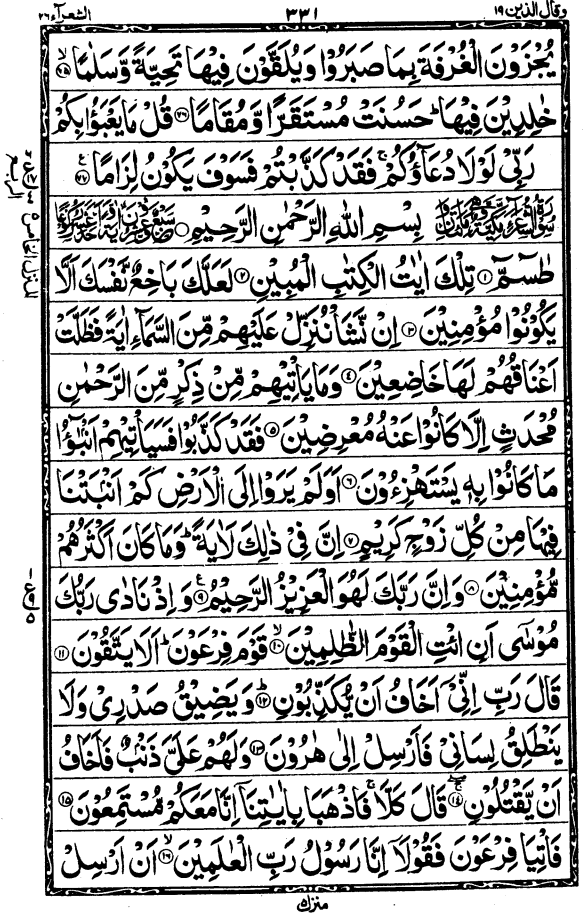 وقال الذین ۱۹
۳۳۱
الشعرآء ۲۶
یُجْزَوْنَ الْغُرْفَةَ بِمَا صَبَرُوْا وَیُلَقَّوْنَ فِیْهَا تَحِیَّةً وَّسَلٰمًا ۙ﴿۷۵﴾
خٰلِدِیْنَ فِیْهَا ؕ حَسُنَتْ مُسْتَقَرًّا وَّمُقَامًا ﴿۷۶﴾ قُلْ مَا یَعْبَؤُا بِكُمْ
رَبِّیْ لَوْلَا دُعَآؤُكُمْ ۚ فَقَدْ كَذَّبْتُمْ فَسَوْفَ یَكُوْنُ لِزَامًا ﴿۷۷﴾
بِسْمِ اللهِ الرَّحْمٰنِ الرَّحِیْمِ
طٰسٓمّٓ ﴿۱﴾ تِلْكَ اٰیٰتُ الْكِتٰبِ الْمُبِیْنِ ﴿۲﴾ لَعَلَّكَ بَاخِعٌ نَّفْسَكَ اَلَّا
یَكُوْنُوْا مُؤْمِنِیْنَ ﴿۳﴾ اِنْ نَّشَاْ نُنَزِّلْ عَلَیْهِمْ مِّنَ السَّمَآءِ اٰیَةً فَظَلَّتْ
اَعْنَاقُهُمْ لَهَا خَاضِعِیْنَ ﴿۴﴾ وَمَا یَاْتِیْهِمْ مِّنْ ذِكْرٍ مِّنَ الرَّحْمٰنِ
مُحْدَثٍ اِلَّا كَانُوْا عَنْهُ مُعْرِضِیْنَ ﴿۵﴾ فَقَدْ كَذَّبُوْا فَسَیَاْتِیْهِمْ اَنْۢبٰٓؤُا
مَا كَانُوْا بِهٖ یَسْتَهْزِءُوْنَ ﴿۶﴾ اَوَلَمْ یَرَوْا اِلَی الْاَرْضِ كَمْ اَنْۢبَتْنَا
فِیْهَا مِنْ كُلِّ زَوْجٍ كَرِیْمٍ ﴿۷﴾ اِنَّ فِیْ ذٰلِكَ لَاٰیَةً ؕ وَمَا كَانَ اَكْثَرُهُمْ
مُّؤْمِنِیْنَ ﴿۸﴾ وَاِنَّ رَبَّكَ لَهُوَ الْعَزِیْزُ الرَّحِیْمُ ﴿۹﴾ وَاِذْ نَادٰی رَبُّكَ
مُوْسٰۤی اَنِ ائْتِ الْقَوْمَ الظّٰلِمِیْنَ ۙ﴿۱۰﴾ قَوْمَ فِرْعَوْنَ ؕ اَلَا یَتَّقُوْنَ ﴿۱۱﴾
قَالَ رَبِّ اِنِّیْۤ اَخَافُ اَنْ یُّكَذِّبُوْنِ ؕ﴿۱۲﴾ وَیَضِیْقُ صَدْرِیْ وَلَا
یَنْطَلِقُ لِسَانِیْ فَاَرْسِلْ اِلٰی هٰرُوْنَ ﴿۱۳﴾ وَلَهُمْ عَلَیَّ ذَنْۢبٌ فَاَخَافُ
اَنْ یَّقْتُلُوْنِ ۚ﴿۱۴﴾ قَالَ كَلَّا ۚ فَاذْهَبَا بِاٰیٰتِنَاۤ اِنَّا مَعَكُمْ مُّسْتَمِعُوْنَ ﴿۱۵﴾
فَاْتِیَا فِرْعَوْنَ فَقُوْلَاۤ اِنَّا رَسُوْلُ رَبِّ الْعٰلَمِیْنَ ۙ﴿۱۶﴾ اَنْ اَرْسِلْ